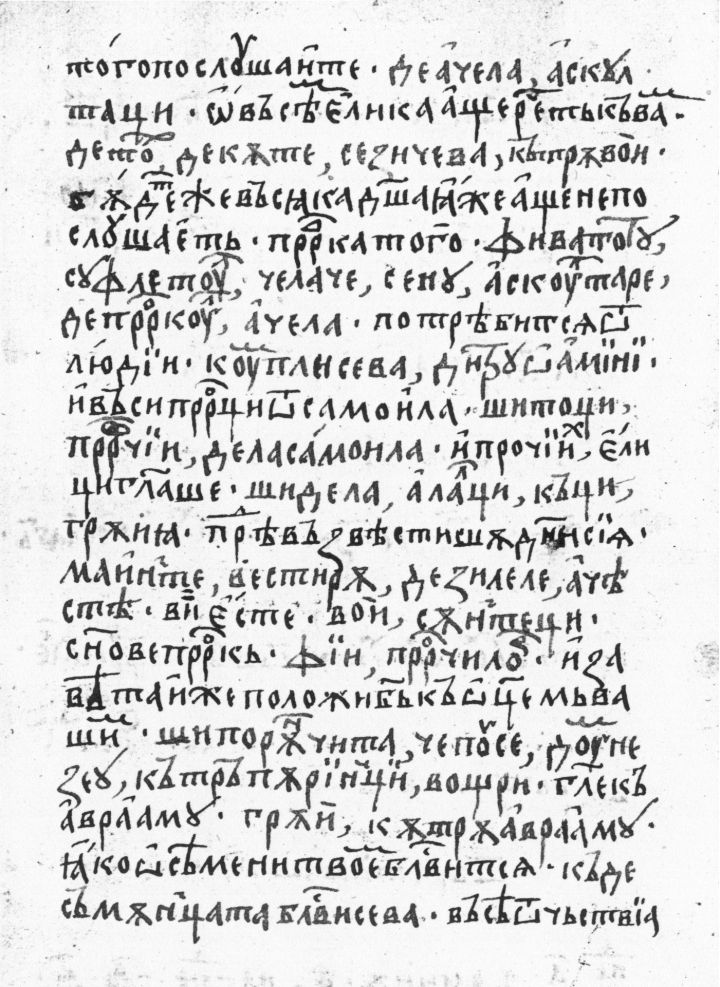 того послꙋшаите · де ачела, аскꙋл
таци · ѡ всѣ елика аще речеть къ ва ·
де тоⷮ, де кѫте, се зичева, кътрѫ вои ·
бѫдеⷤ же въсꙗка дш҃а ꙗже аще не по
слꙋшаеть · прⷪ҇рка того · фи ва тотꙋ,
сꙋфлетоуⷧ, челаче, се нꙋ, аскоуⷧтаре,
де прⷪ҇ркоуⷧ, ачела · потрѣбитсѧ ѿ
людїи · коуплисева, динрꙋ ѡамїнї ·
и въси прⷪ҇рци ѿ самоила · ши тоци,
прⷪ҇рчїи, де ла самоила · и прочїиⷯ, ели
ци гл҃аше · ши де ла, алалци, къци,
грѫиꙗ · прѣвъзвѣстишѫ дн҃и сїѧ ·
маинте, вестирѫ, де зилеле, ачѣ
стѣ · ви есте · вои, сѫнтеци ·
сн҃ове прⷪ҇ркь · фїи, прⷪ҇рчилоⷬ · и за
вѣта иже положи бь҃ къ ѿцемь ва
шиⷨ · ши порѫнчита, че пꙋсе, доуⷨне
зеꙋ, кътръ пѫрїнцїи, вощри · гл҃е къ
аврааму · грѫи, кѫтрѫ аврааму ·
ꙗко ѡ сѣмени твоеⷨ блⷭ҇витсѧ · къ де
съмѫнцата бл҃висева · въсѣ ѿчьствїа